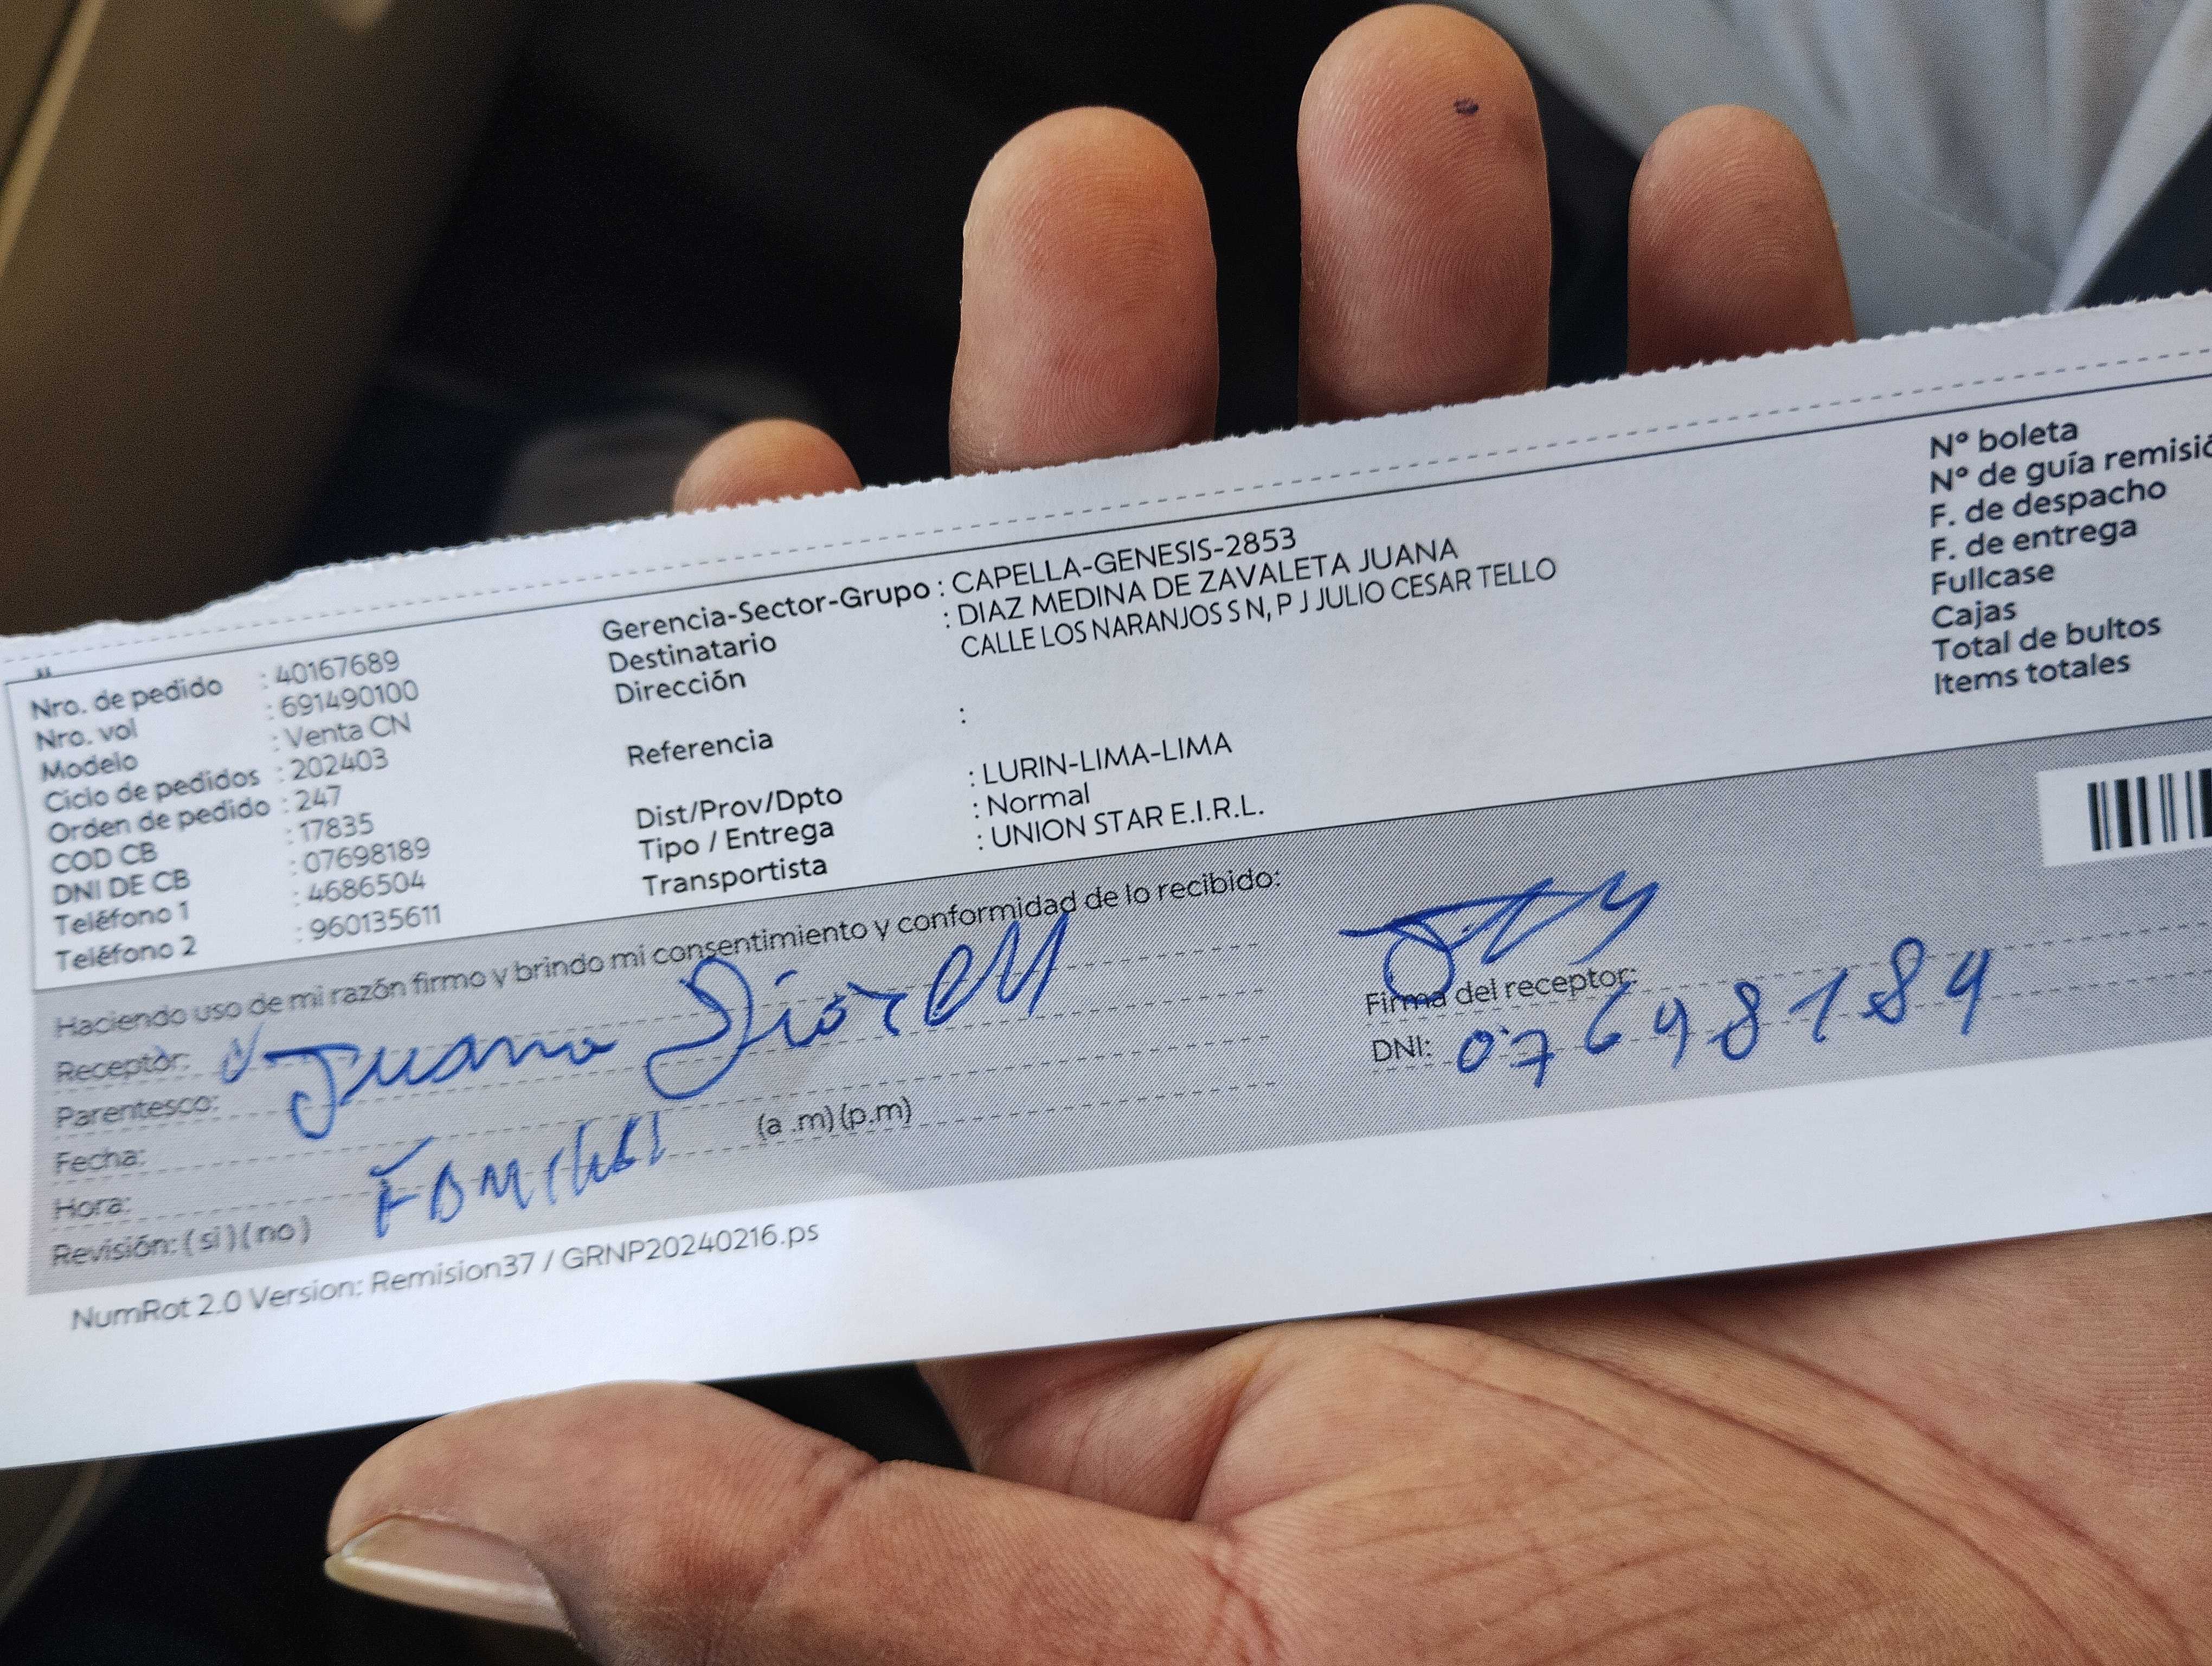 Nro. de pedido : 40167689
Nro. vol : 691490100
Modelo : Venta CN
Ciclo de pedidos : 202403
Orden de pedido : 247
COD CB : 17835
DNI DE CB : 07698189
Teléfono 1 : 4686504
Teléfono 2 : 960135611
Gerencia-Sector-Grupo : CAPELLA-GENESIS-2853
Destinatario : DIAZ MEDINA DE ZAVALETA JUANA
Dirección CALLE LOS NARANJOS S N, P J JULIO CESAR TELLO
Referencia :
Dist/Prov/Dpto : LURIN-LIMA-LIMA
Tipo / Entrega : Normal
Transportista : UNION STAR E.I.R.L.
N° boleta
N° de guía remisió
F. de despacho
F. de entrega
Fullcase
Cajas
Total de bultos
Items totales
Haciendo uso de mi razón firmo y brindo mi consentimiento y conformidad de lo recibido:
Receptor: Juana
Parentesco:
Fecha:
Hora: (a .m) (p.m)
Revisión: ( si ) ( no )
Firma del receptor:
DNI: 07698189
NumRot 2.0 Version: Remision37 / GRNP20240216.ps